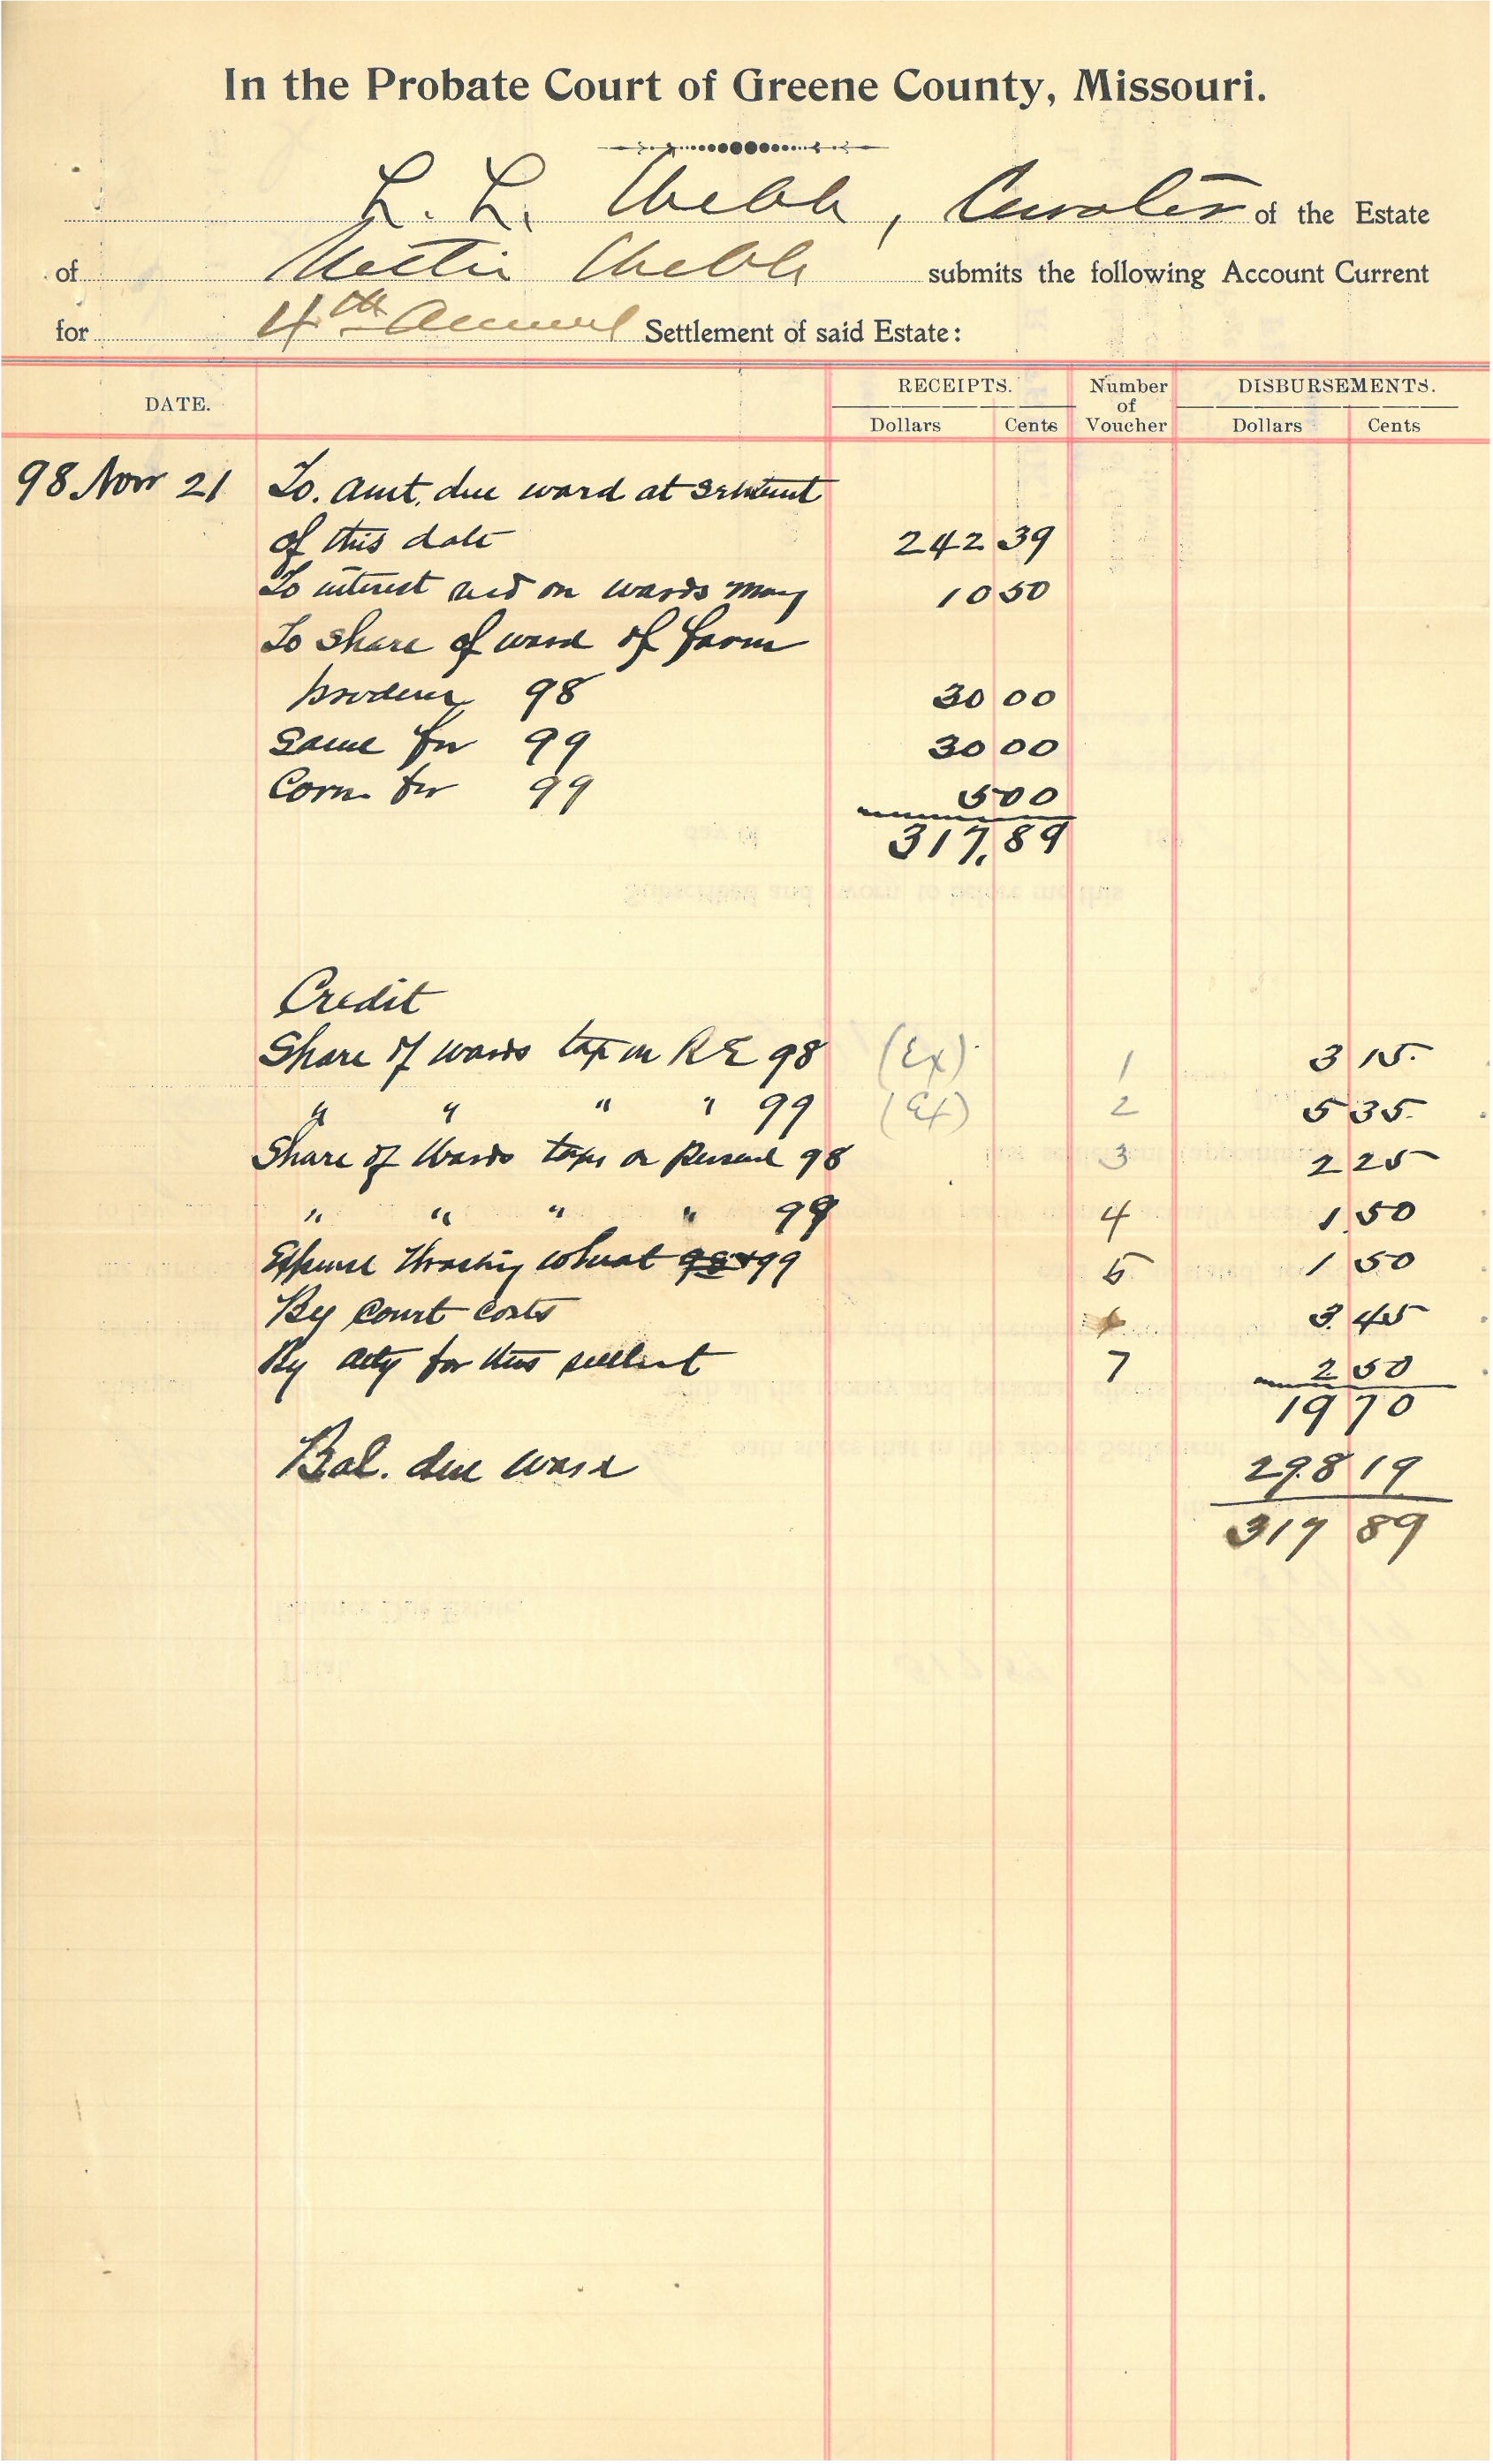 In the Probate Court of Greene County, Missouri.
L. L. Webb, Curator of the Estate
of Webb submits the following Account Current
for 4th Annual Settlement of said Estate:
DATE. RECEIPTS. Number of Voucher DISBURSEMENTS.
Dollars Cents Dollars Cents
98 Nov 21 To. amt. due ward at
of this date 242 39
To interest on wards 10 50
To share of ward of farm
98 30 00
Same for 99 30 00
Corn for 99 5 00
317.89
Credit
Share of wards tax on R E 98 (Ex) 1 3 15
" " " " 99 (Ex) 2 5 35
Share of Wards taxes on 98 3 2 25
" " " " 99 4 1 50
Expense Thrashing wheat 98 & 99 5 1 50
By Court Costs 6 3 45
By atty for this 7 2 50
19 70
Bal. due ward 298 19
317 89